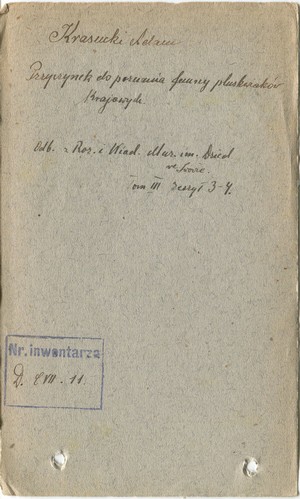 Krasucki Adam
Przyczynek do poznania fauny pluskwiaków
Krajowych.
Odb. z Roz. i Wiad. Muz. im. Dzied
we Lwow.
Tom III Zeszyt 3-4.
Nr. inwentarza
D. XVII. 11.